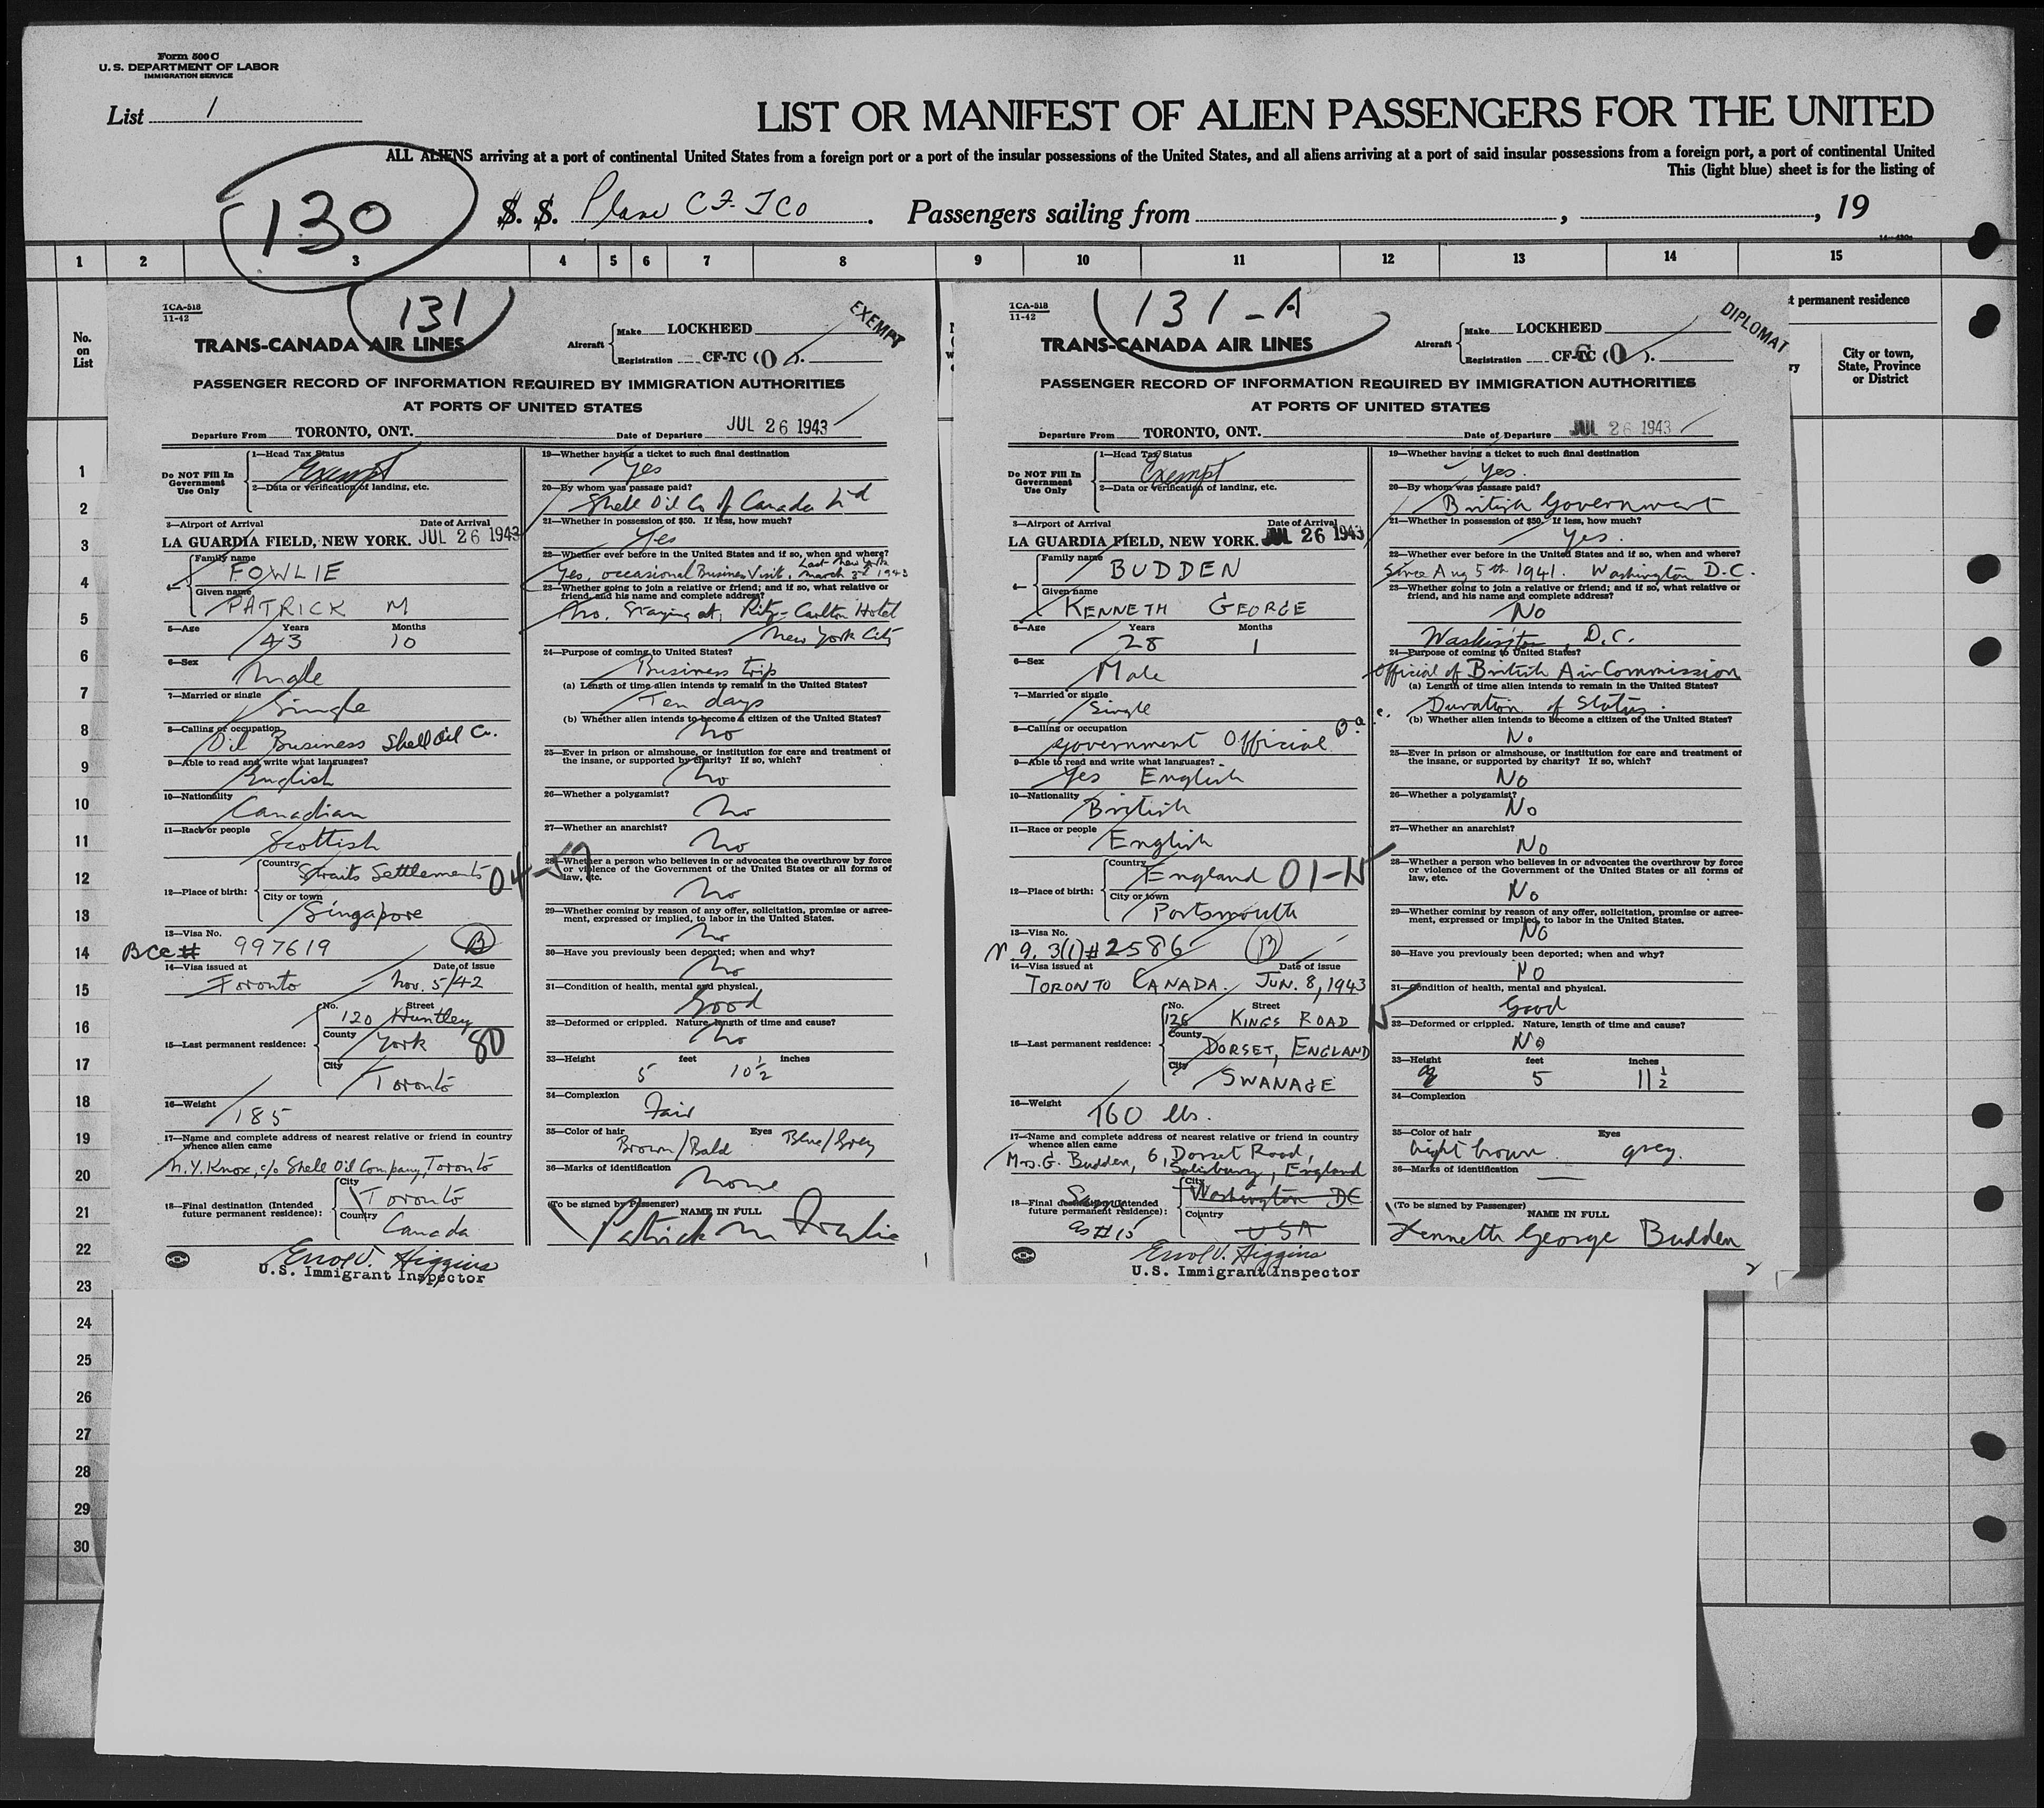 Form 500 C
U. S. DEPARTMENT OF LABOR
IMMIGRATION SERVICE
List 1
LIST OR MANIFEST OF ALIEN PASSENGERS FOR THE UNITED
ALL ALIENS arriving at a port of continental United States from a foreign port or a port of the insular possessions of the United States, and all aliens arriving at a port of said insular possessions from a foreign port, a port of continental United
This (light blue) sheet is for the listing of
130
S. S. Plane CF-TCO. Passengers sailing from , , 19
1 2 3 4 5 6 7 8 9 10 11 12 13 14 15
No.
on
List
t permanent residence
ry
City or town,
State, Province
or District
1
2
3
4
5
6
7
8
9
10
11
12
13
14
15
16
17
18
19
20
21
22
23
24
25
26
27
28
29
30
TCA-518
11-42
131
EXEMPT
TRANS-CANADA AIR LINES
Aircraft
Make LOCKHEED
Registration CF-TC (O).
PASSENGER RECORD OF INFORMATION REQUIRED BY IMMIGRATION AUTHORITIES
AT PORTS OF UNITED STATES
Departure From TORONTO, ONT. Date of Departure JUL 26 1943
Do NOT Fill In
Government
Use Only
1—Head Tax Status
Exempt
2—Data or verification of landing, etc.
3—Airport of Arrival Date of Arrival
LA GUARDIA FIELD, NEW YORK. JUL 26 1943
4— Family name
FOWLIE
Given name
PATRICK M
5—Age Years Months
43 10
6—Sex
Male
7—Married or single
Single
8—Calling or occupation
Oil Business Shell Oil Co.
9—Able to read and write what languages?
English
10—Nationality
Canadian
11—Race or people
Scottish
12—Place of birth:
Country
Straits Settlements 04-57
City or town
Singapore
13—Visa No.
BCC # 997619 B
14—Visa issued at Date of issue
Toronto Nov. 5/42
15—Last permanent residence:
No. Street
120 Huntley
County
York 80
City
Toronto
16—Weight
185
17—Name and complete address of nearest relative or friend in country
whence alien came
N.Y. Knox, c/o Shell Oil Company, Toronto
18—Final destination (Intended
future permanent residence):
City
Toronto
Country
Canada
Errol V. Higgins
U.S. Immigrant Inspector
19—Whether having a ticket to such final destination
Yes
20—By whom was passage paid?
Shell Oil Co of Canada Ltd
21—Whether in possession of $50. If less, how much?
Yes
22—Whether ever before in the United States and if so, when and where?
Last New York
Yes, occasional Business Visits, March 3rd 1943
23—Whether going to join a relative or friend; and if so, what relative or
friend, and his name and complete address?
No. Staying at, Ritz-Carlton Hotel
New York City
24—Purpose of coming to United States?
Business trip
(a) Length of time alien intends to remain in the United States?
Ten days
(b) Whether alien intends to become a citizen of the United States?
No
25—Ever in prison or almshouse, or institution for care and treatment of
the insane, or supported by charity? If so, which?
No
26—Whether a polygamist?
No
27—Whether an anarchist?
No
28—Whether a person who believes in or advocates the overthrow by force
or violence of the Government of the United States or all forms of
law, etc.
No
29—Whether coming by reason of any offer, solicitation, promise or agree-
ment, expressed or implied, to labor in the United States.
No
30—Have you previously been deported; when and why?
No
31—Condition of health, mental and physical.
Good
32—Deformed or crippled. Nature, length of time and cause?
No
33—Height feet inches
5 10 1/2
34—Complexion
Fair
35—Color of hair Eyes
Brown/Bald Blue/Grey
36—Marks of identification
None
(To be signed by Passenger)
NAME IN FULL
Patrick M Fowlie
1
TCA-518
11-42
131-A
DIPLOMAT
TRANS-CANADA AIR LINES
Aircraft
Make LOCKHEED
Registration CF-TC (O).
PASSENGER RECORD OF INFORMATION REQUIRED BY IMMIGRATION AUTHORITIES
AT PORTS OF UNITED STATES
Departure From TORONTO, ONT. Date of Departure JUL 26 1943
Do NOT Fill In
Government
Use Only
1—Head Tax Status
Exempt
2—Data or verification of landing, etc.
3—Airport of Arrival Date of Arrival
LA GUARDIA FIELD, NEW YORK. JUL 26 1943
4— Family name
BUDDEN
Given name
KENNETH GEORGE
5—Age Years Months
28 1
6—Sex
Male
7—Married or single
Single
8—Calling or occupation
Government Official
9—Able to read and write what languages?
Yes English
10—Nationality
British
11—Race or people
English
12—Place of birth:
Country
England 01-15
City or town
Portsmouth
13—Visa No.
9. 3(1) # 2586 B
14—Visa issued at Date of issue
TORONTO CANADA. JUN. 8, 1943
15—Last permanent residence:
No. Street
126 KINGS ROAD
County
DORSET, ENGLAND
City
SWANAGE
16—Weight
160 lbs.
17—Name and complete address of nearest relative or friend in country
whence alien came
Mrs. G. Budden, 6, Dorset Road,
Salisbury, England
18—Final destination (Intended
future permanent residence):
Same
as # 15
City
Washington DC
Country
USA
Errol V. Higgins
U.S. Immigrant Inspector
19—Whether having a ticket to such final destination
Yes.
20—By whom was passage paid?
British Government
21—Whether in possession of $50. If less, how much?
Yes.
22—Whether ever before in the United States and if so, when and where?
Since Aug 5th 1941. Washington D.C.
23—Whether going to join a relative or friend; and if so, what relative or
friend, and his name and complete address?
No
Washington, D.C.
24—Purpose of coming to United States?
Official of British Air Commission
(a) Length of time alien intends to remain in the United States?
Duration of Status.
(b) Whether alien intends to become a citizen of the United States?
No
25—Ever in prison or almshouse, or institution for care and treatment of
the insane, or supported by charity? If so, which?
No
26—Whether a polygamist?
No
27—Whether an anarchist?
No
28—Whether a person who believes in or advocates the overthrow by force
or violence of the Government of the United States or all forms of
law, etc.
No
29—Whether coming by reason of any offer, solicitation, promise or agree-
ment, expressed or implied, to labor in the United States.
No
30—Have you previously been deported; when and why?
No
31—Condition of health, mental and physical.
Good
32—Deformed or crippled. Nature, length of time and cause?
No
33—Height feet inches
5 11 1/2
34—Complexion
35—Color of hair Eyes
light brown. grey.
36—Marks of identification
—
(To be signed by Passenger)
NAME IN FULL
Kenneth George Budden
2